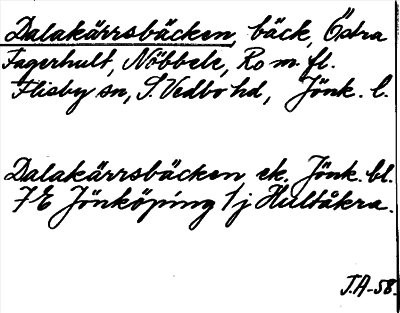 Dalakärrsbäcken, bäck, Östra
Fagerhult, Nöbbele, Ro m. fl.
Flisby sn, S. Vedbo hd, Jönk. l.
Dalakärrsbäcken ek. Jönk. bl.
7E Jönköping 1j Hultåkra.
J.A-58.